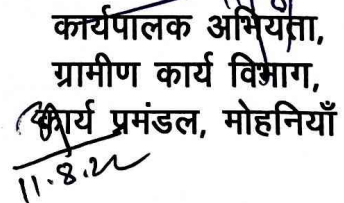 कार्यपालक अभियंता,
ग्रामीण कार्य विभाग,
कार्य प्रमंडल, मोहनियाँ
11.8.22